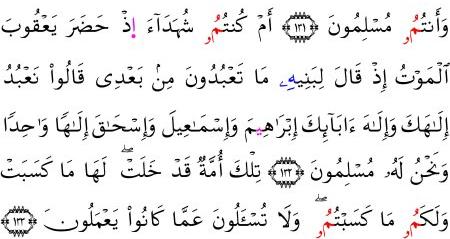 وَأَنتُمُۥ مُسْلِمُونَ ﴿١٣١﴾ أَمْ كُنتُمُۥ شُهَدَآءَ إِذْ حَضَرَ يَعْقُوبَ
اَ۬لْمَوْتُ إِذْ قَالَ لِبَنِيهِۦ مَا تَعْبُدُونَ مِنۢ بَعْدِى قَالُواْ نَعْبُدُ
إِلَٰهَكَ وَإِلَٰهَ ءَابَآئِكَ إِبْرَاهِيمَ وَإِسْمَاعِيلَ وَإِسْحَاقَ إِلَٰهًا وَاحِدًا
وَنَحْنُ لَهُۥ مُسْلِمُونَ ﴿١٣٢﴾ تِلْكَ أُمَّةٌ قَدْ خَلَتْ ۖ لَهَا مَا كَسَبَتْ
وَلَكُمُۥ مَا كَسَبْتُمُۥ ۖ وَلَا تُسْـَٔلُونَ عَمَّا كَانُواْ يَعْمَلُونَ ﴿١٣٣﴾